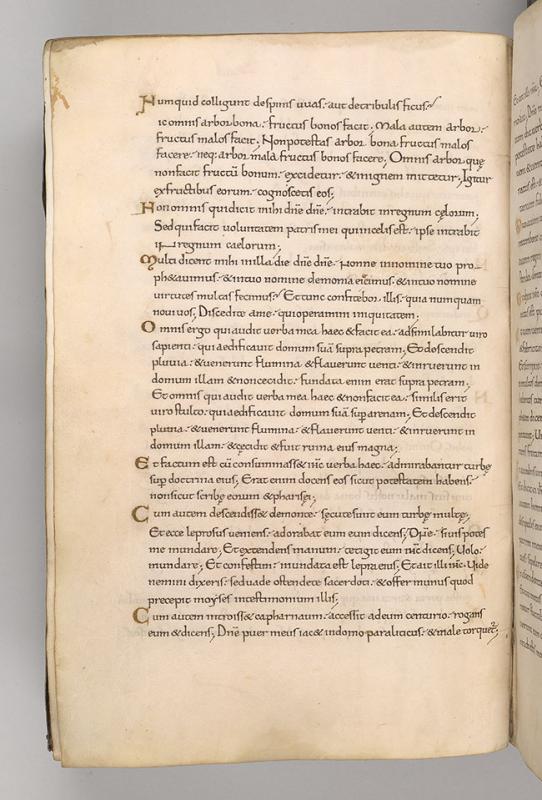 Numquid colligunt despinis uuas. aut detribulis ficus.
ic omnis arbor bona. fructus bonos facit; Mala autem arbor.
fructus malos facit; Non potestas arbor bona fructus malos
facere. neq; arbor mala fructus bonos facere; Omnis arbor quę
non facit fructū bonum. excidetur. & inignem mittetur; Igitur
exfructibus eorum. cognoscetis eos;
Non omnis quidicit mihi dn̄e dn̄e. intrabit inregnum cęlorum;
Sed qui facit uoluntatem patris mei qui incelis est. ipse intrabit
in regnum caelorum;
Multi dicent mihi inilla die dn̄e dn̄e. Nonne innomine tuo pro
ph&auimus. & intuo nomine demonia eiecimus. & intuo nomine
uirtutes multas fecimus. Et tunc confitebor illis. quia numquam
noui uos; Discedite ame. qui operamini iniquitatem;
Omnis ergo qui audit uerba mea haec & facit ea. adsimilabitur uiro
sapienti. qui aedificauit domum suā supra petram; Et descendit
pluuia. & uenerunt flumina. & flauerunt uenti. & inruerunt in
domum illam & noncecidit. fundata enim erat supra petram;
Et omnis qui audit uerba mea haec & nonfacit ea. similis erit
uiro stulto. qui aedificauit domum suā sup̄ arenam; Et descendit
pluuia. & uenerunt flumina. & flauerunt uenti. & inruerunt in
domum illam. & cecidit. & fuit ruina eius magna;
Et factum est cū consummass& ih̄c uerba haec. admirabantur turbę
sup̄ doctrina eius; Erat enim docens eos sicut potestatem habens.
non sicut scribę eorum & pharisei;
Cum autem descendiss& demonte. secutesunt eum turbę multę;
Et ecce leprosus ueniens. adorabat eum eum dicens; Dn̄e. si uis potes
me mundare; Et extendens manum. tetigit eum ih̄c dicens; Uolo.
mundare; Et confestim mundata est lepra eius; Et ait illi ih̄c. Uide
nemini dixeris. sed uade ostende te sacerdoti. & offer munus quod
precepit moyses intestimonium illis;
Cum autem introiss& capharnaum. accessit adeum centurio. rogans
eum & dicens; Dn̄e puer meus iac& indomo paraliticus. & male torquet;